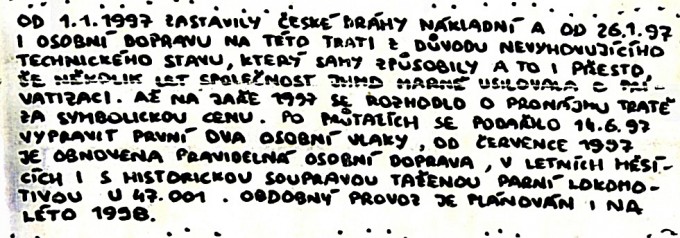 OD 1.1.1997 ZASTAVILY ČESKÉ DRÁHY NÁKLADNÍ A OD 26.1.97
I OSOBNÍ DOPRAVU NA TÉTO TRATI Z DŮVODU NEVYHOVUJÍCÍHO
TECHNICKÉHO STAVU, KTERÝ SAMY ZPŮSOBILY A TO I PŘESTO,
ŽE NĚKOLIK LET SPOLEČNOST JHMD MARNĚ USILOVALA O PRI-
VATIZACI. AŽ NA JAŘE 1997 SE ROZHODLO O PRONÁJMU TRATĚ
ZA SYMBOLICKOU CENU. PO PRŮTAZÍCH SE PODAŘILO 14.6.97
VYPRAVIT PRVNÍ DVA OSOBNÍ VLAKY, OD ČERVENCE 1997
JE OBNOVENA PRAVIDELNÁ OSOBNÍ DOPRAVA, V LETNÍCH MĚSÍ-
CÍCH I S HISTORICKOU SOUPRAVOU TAŽENOU PARNÍ LOKOMO-
TIVOU U 47.001. OBDOBNÝ PROVOZ JE PLÁNOVÁN I NA
LÉTO 1998.